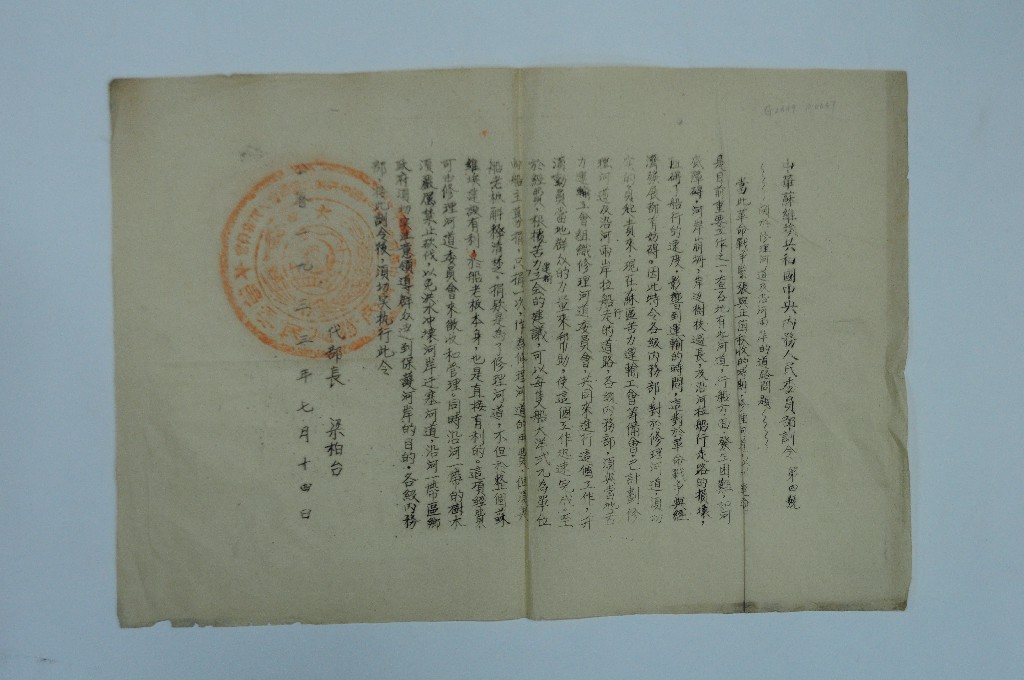 中華蘇維埃共和國中央內務人民委員部訓令 第四號
關於修理河道及沿河兩岸的道路問題
當此革命戰爭緊張與正當秋收的時期,修理河道
是目前重要工作之一,查各地有些河道,行船方面,發生困難,如河
底障碍,河岸崩坍,岸边樹枝過長,及沿河拉船行走路的損壞,
阻碍了船行的速度,影響到運輸的時間,這對於革命戰爭與經
濟發展斷有妨碍。因此特令各級內務部,對於修理河道,須切
实的負起責來,現在蘇區苦力運輸工會籌備會,已計劃修
理河道及沿河兩岸拉船走的道路,各級內務部,須與當地苦
力運輸工會組織修理河道委員會,共同來進行這個工作,并
須動員當地群众的力量來幇助,使這個工作迅速完成,至
於經費,根據苦力運輸工会的建議,可以每隻船大洋弍元為單位
由船主負責捐,只捐一次,作為修理河道的用費,但須與
船老板解釋清楚,捐欵是為了修理河道,不但於整個蘇
維埃建設有利,於船老板本身,也是直接有利的。這項經費
可由修理河道委員會來徵收和管理。同時沿河一帶的樹木
須嚴厲禁止砍伐,以免洪水冲壞河岸迁塞河道,沿河一帶區鄉
政府須切实注意領導群众,达到保護河岸的目的,各級內務
部接此訓令後,須切实执行此令
代部長 梁柏台
公曆一九三三年七月十四日